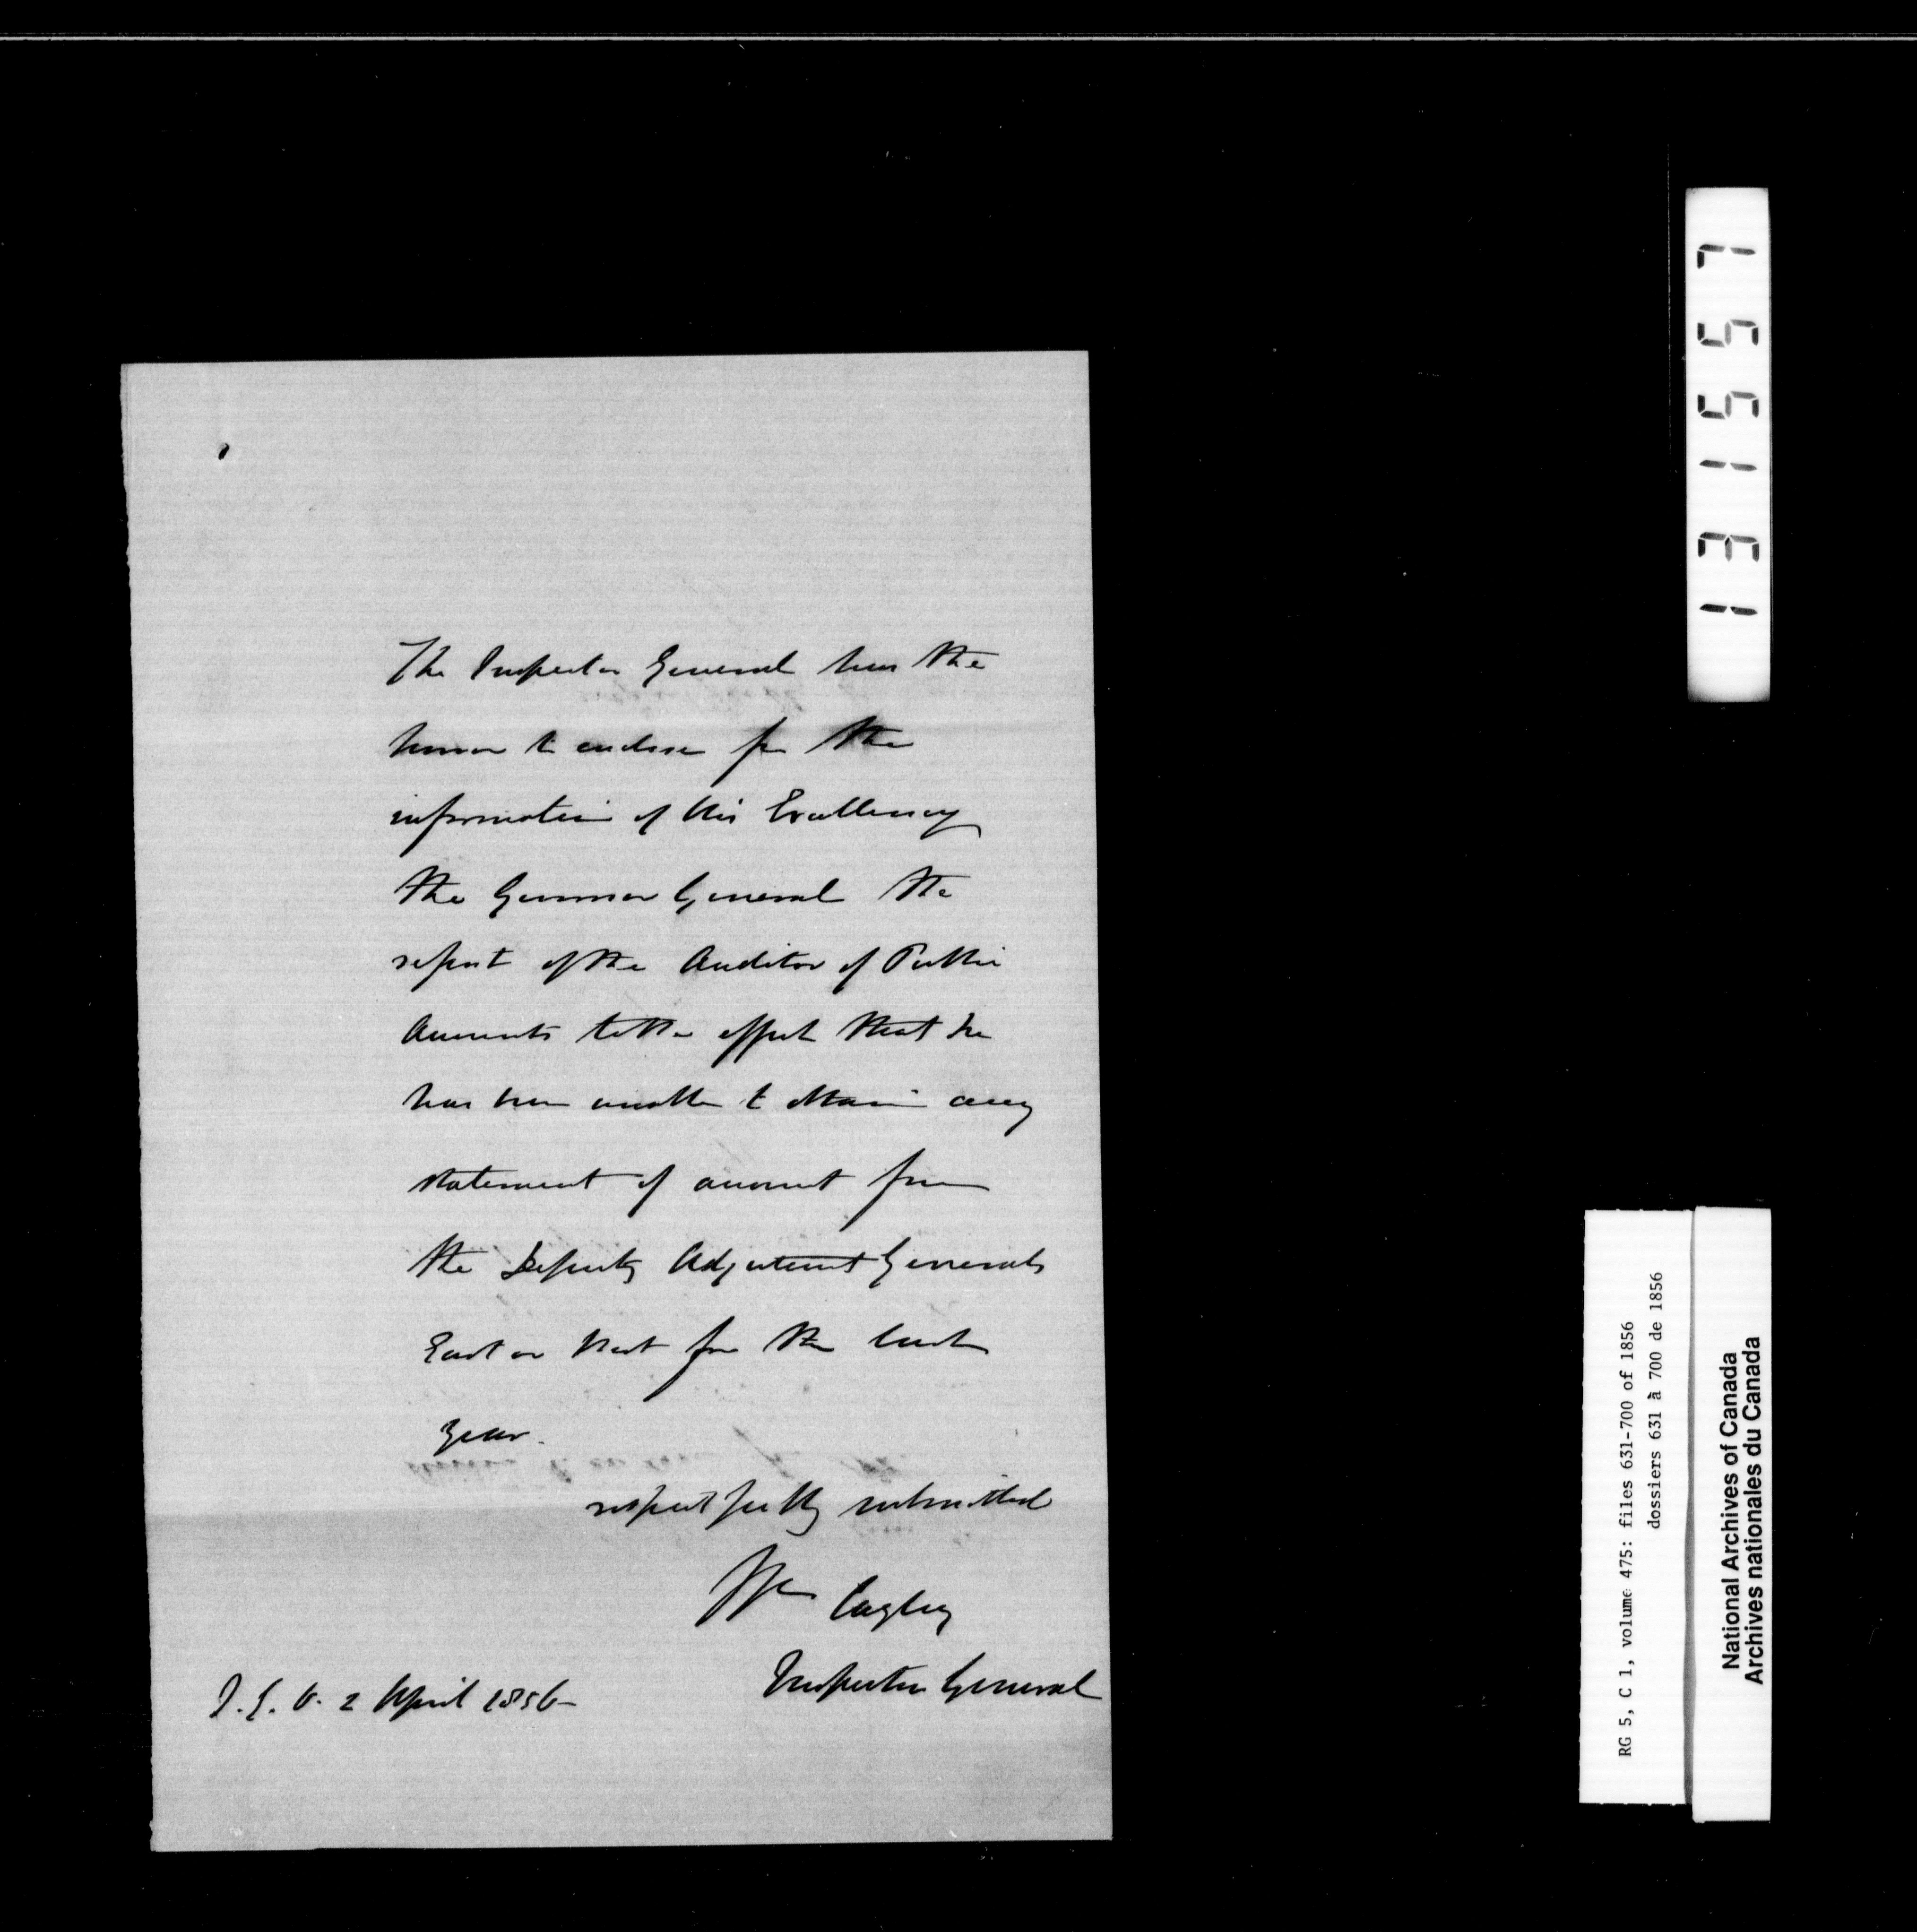 The Inspector General has the
honor to enclose for the
information of His Excellency
the Governor General the
report of the Auditor of Public
Accounts to the effect that he
has been unable to obtain any
statement of account from
the Deputy Adjutant Generals
East or West for the last
year.
respectfully submitted
Wm Cayley
Inspector General
I. G. O. 2 April 1856
131557
RG 5, C 1, volume 475: files 631-700 of 1856
dossiers 631 à 700 de 1856
National Archives of Canada
Archives nationales du Canada